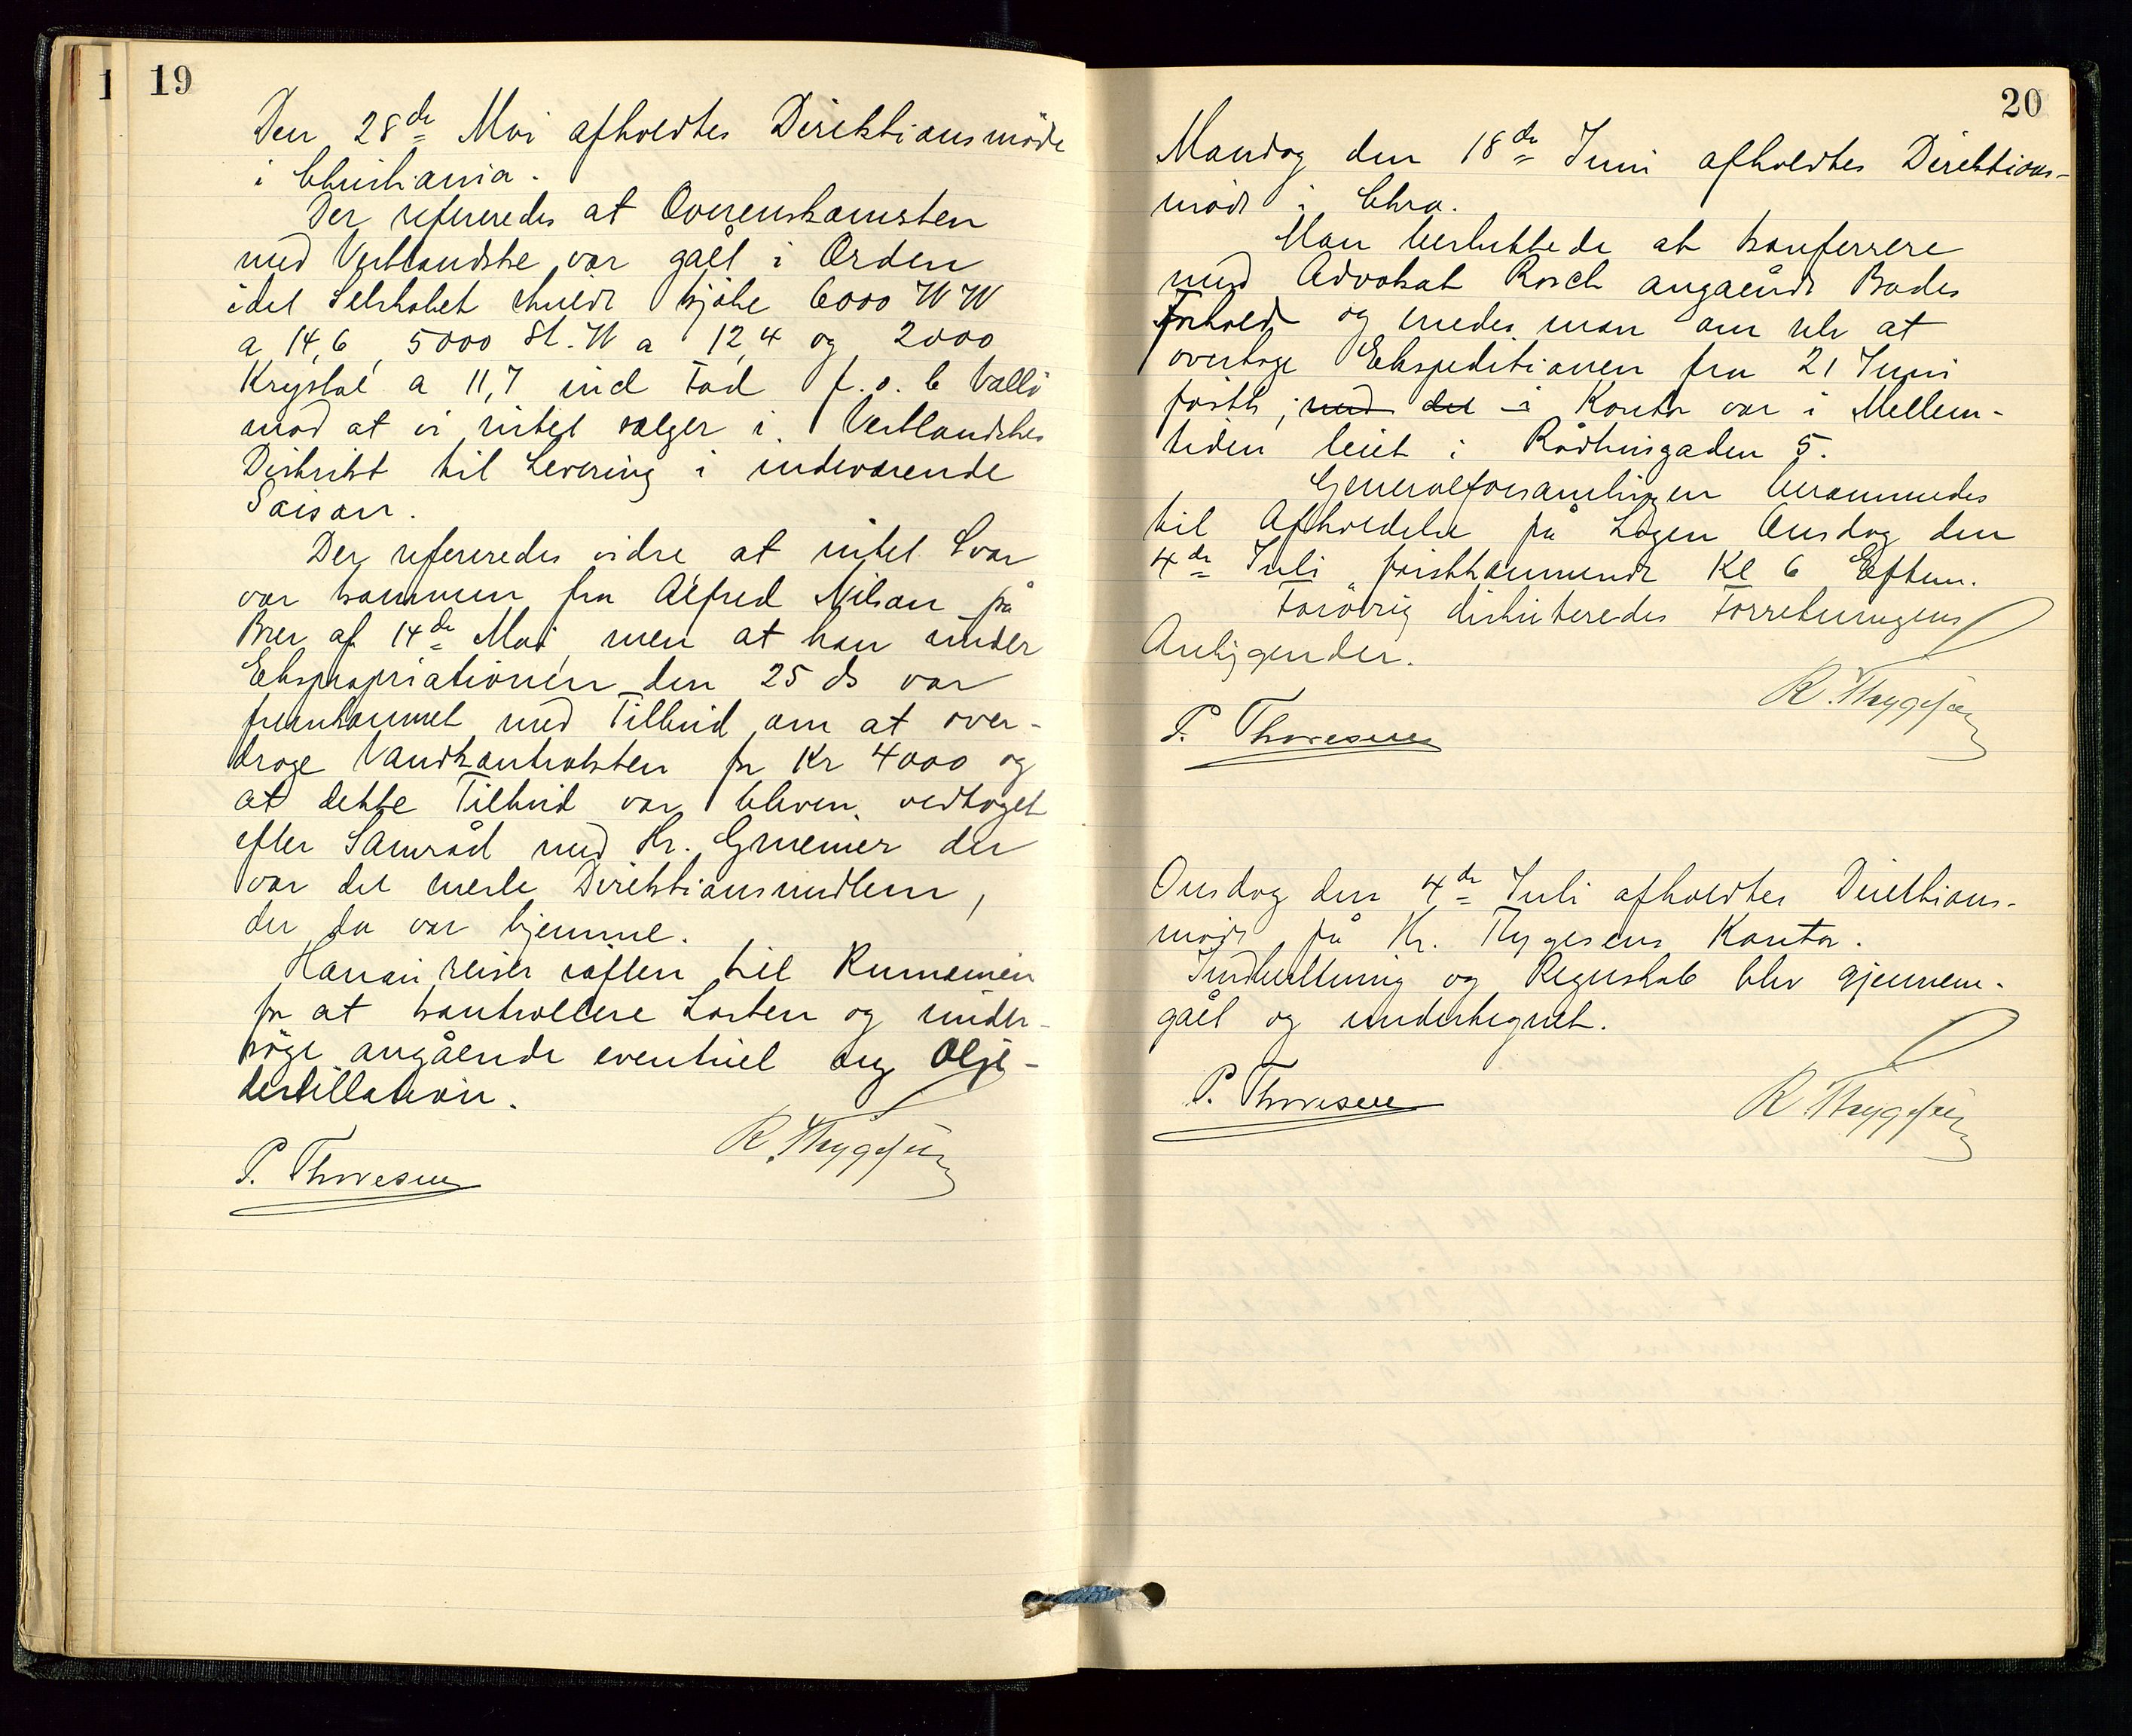 1 19
Den 28de Mai afholdtes Direktionsmøde
i Christiania.
Der refereredes at Overenskomsten
med Vestlandske var gået i Orden
idet Selskabet skulde kjøbe 6000 WW
a 14,6, 5000 St. W a 12,4 og 2000
Krystal a 11,7 incl Fad f.o.b Vallö
mod at vi intet sælger i Vestlandskes
Distrikt til Levering i indeværende
Saison.
Der refereredes vidre at intet Svar
var kommen fra Alfred Nilson på
Brev af 14de Mai, men at han under
Ekspropriationen den 25 ds var
fremkommet med Tilbud om at over-
drage Vandkontrakten for Kr 4000 og
at dette Tilbud var bleven vedtaget
efter Samråd med Hr. der
var det eneste Direktionsmedlem,
der da var hjemme.
reiser iaften til Rumænien
for at kontrollere Lasten og under-
søge angående eventuel ny Olje-
destillation.
R. Thygesen
P. Thoresen
20
Mandag den 18de Juni afholdtes Direktions-
møde i Chra.
Man besluttede at konferrere
med Advokat Rosch angående Bades
Forhold og enedes man om selv at
overtage Ekspeditionen fra 21 Juni
førstk; med det i Kontor var i Mellem-
tiden leiet i Rådhusgaden 5.
Generalforsamlingen berammedes
til Afholdelse på Logen Onsdag den
4de Juli førstkommende Kl 6 Efterm.
Forøvrig diskuteredes Forretningens
Anliggender.
R. Thygesen
P. Thoresen
Onsdag den 4de Juli afholdtes Direktions-
møde på Hr. Thygesens Kontor.
Indberetning og Regnskab blev gjennem-
gået og undertegnet.
P. Thoresen
R. Thygesen